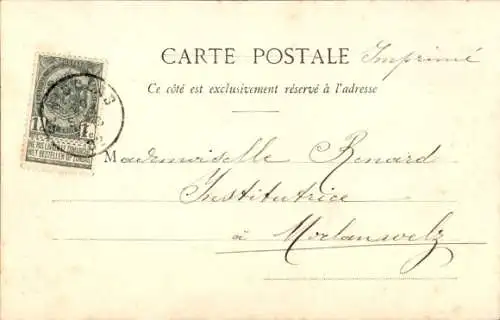 CARTE POSTALE Imprimé
Ce côté est exclusivement réservé à l'adresse
Mademoiselle Renard
Institutrice
à Morlanwelz
NE PAS LIVRER LE DIMANCHE
NIET BESTELLEN OP ZONDAG